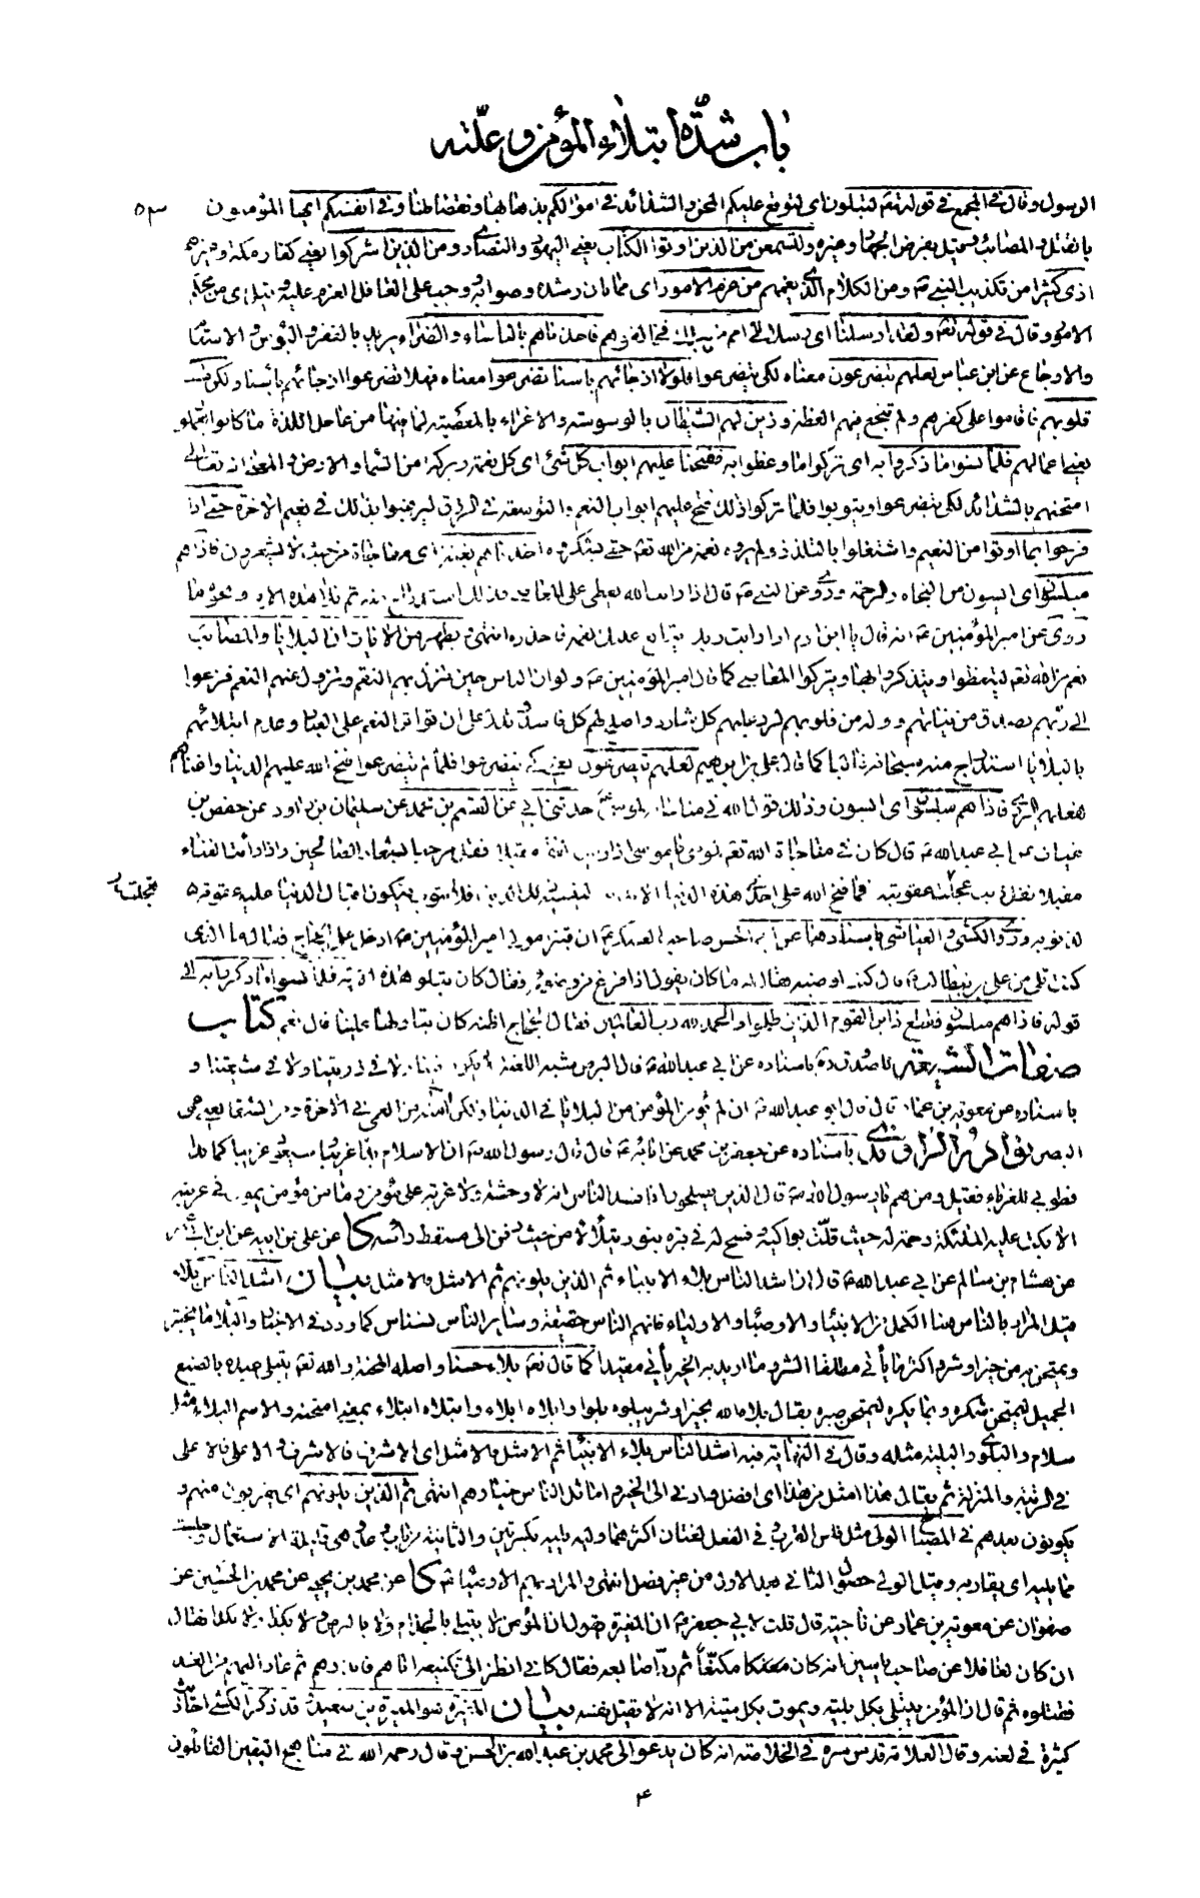 باب شدّة ابتلاء المؤمن و علّته
الرسول وقال في المجمع في قوله تعه لتبلون اى لتوقع عليكم المحن والشدائد في اموالكم بذهابها ونقصانها وفي انفسكم ايها المؤمنون
٥٣
بالقتل والمصائب وقيل بفرض الجهاد وغيره ولتسمعن من الذين اوتوا الكتاب يعني اليهود والنصارى ومن الذين اشركوا يعني كفار مكة وغيرهم
اذى كثيرا من تكذيب النبي ص ومن الكلام الذى يغمهم من عزم الامور اى مما بان رشده وصوابه ووجب على العاقل العزم عليه وقيل اى من محكم
الامور وقال في قوله تعه ولقد ارسلنا اى رسلا الى امم من قبلك فخالفوهم فاخذناهم بالباساء والضراء يريد بالفقر والبؤس والاسقام
والاوجاع عن ابن عباس لعلهم يتضرعون معناه لكي يتضرعوا فلولا اذ جائهم باسنا تضرعوا معناه فهلا تضرعوا اذ جائهم باسنا ولكن قست
قلوبهم فاقاموا على كفرهم ولم تنجع فيهم العظة وزين لهم الشيطان بالوسوسة والاغراء بالمعصية لما فيها من عاجل اللذة ما كانوا يعملون
يعني اعمالهم فلما نسوا ما ذكروا به اى تركوا ما وعظوا به ففتحنا عليهم ابواب كل شئ اى كل نعمة وبركة من السماء والارض والمعنى انه تعالى
امتحنهم بالشدائد لكي يتضرعوا ويتوبوا فلما تركوا ذلك فتح عليهم ابواب النعم والتوسعة في الرزق ليرغبوا بذلك في نعيم الاخرة حتى اذا
فرحوا بما اوتوا من النعيم واشتغلوا بالتلذذ ولم يروه نعمة من الله تعه حتى يشكروه اخذناهم بغتة اى مفاجاة من حيث لا يشعرون فاذا هم
مبلسون اى ايسون من النجاة والرحمة وروى عن النبي ص قال اذا رايت الله يعطى على المعاصى فذلك استدراج منه ثم تلا هذه الاية ونحوه ما
روى عن امير المؤمنين ع انه قال يا ابن ادم اذا رايت ربك يتابع عليك نعمه فاحذره انتهى يظهر من الايات ان البلايا والمصائب
نعم من الله تعه ليتعظوا ويتذكروا بها ويتركوا المعاصي كما قال امير المؤمنين ع ولو ان الناس حين تنزل بهم النقم وتزول عنهم النعم فزعوا
الى ربهم بصدق من نياتهم ووله من قلوبهم لرد عليهم كل شارد واصلح لهم كل فاسد وتدل على ان تواتر النعم على العباد وعدم ابتلائهم
بالبلايا استدراج منه سبحانه غالبا كما قال علي بن ابرهيم لعلهم يتضرعون يعني كي يتضرعوا فلما لم يتضرعوا فتح الله عليهم الدنيا واغناهم
لفعلهم الردى فاذا هم مبلسون اى ايسون وذلك قول الله في مناجاته لموسى ع حدثني ابي عن القسم بن محمد عن سليمان بن داود عن حفص بن
غياث عن ابي عبد الله ع قال كان في مناجاة الله تعه لموسى يا موسى اذا رايت الفقر مقبلا فقل مرحبا بشعار الصالحين واذا رايت الغناء
مقبلا فقل ذنب عجلت عقوبته فما فتح الله على احد هذه الدنيا الا بذنب لينسيه ذلك الذنب فلا يتوب فيكون اقبال الدنيا عليه عقوبة
لذنوبه وروى الكشى والعياشي باسنادهما عن ابي الحسن صاحب العسكر ع ان قنبر مولى امير المؤمنين ع ادخل على الحجاج فقال له ما الذى
كنت تلى من علي بن ابيطالب ع قال كنت اوضيه فقال له ما كان يقول اذا فرغ من وضوئه فقال كان يتلو هذه الاية فلما نسوا ما ذكروا به الى
قوله فاذا هم مبلسون فقطع دابر القوم الذين ظلموا والحمد لله رب العالمين فقال الحجاج اظنه كان يتاولها علينا قال نعم كتاب
صفات الشيعة للصدوق ره باسناده عن ابي عبد الله ع قال البرص شبه اللعنة لا يكون فينا ولا في ذريتنا ولا في شيعتنا و
باسناده عن معوية بن عمار قال قال ابو عبد الله ع ان لم يؤمن المؤمن من البلايا في الدنيا ولكن امنه من العمى في الاخرة ومن الشقاء يعنى عمى
البصر نوادر الراوندى باسناده عن جعفر بن محمد عن ابائه ع قال قال رسول الله ص ان الاسلام بدا غريبا وسيعود غريبا كما بدا
فطوبى للغرباء فقيل ومن هم يا رسول الله ص قال الذين يصلحون اذا فسد الناس انه لا وحشة ولا غربة على مؤمن وما من مؤمن يموت في غربته
الا بكت عليه الملئكة رحمة له حيث قلّت بواكيه وفسح له في قبره بنور يتلألأ من حيث دفن الى مسقط راسه كا عن علي بن ابيه عن ابن ابي عمير
عن هشام بن سالم عن ابي عبد الله ع قال ان اشد الناس بلاء الانبياء ثم الذين يلونهم ثم الامثل فالامثل بيان اشد الناس بلاء
قيل المراد بالناس هنا الكمل من الانبياء والاوصياء والاولياء فانهم الناس حقيقة وساير الناس نسناس كما ورد في الاخبار والبلاء ما يختبر
ويمتحن به من خير او شر واكثر ما ياتي مطلقا الشر وما اريد به الخير ياتي مقيدا كما قال تعه بلاء حسنا واصله المحنة والله تعه يبتلى عبده بالصنع
الجميل ليمتحن شكره وبما يكره ليمتحن صبره يقال بلاه الله بخير او شر يبلوه بلوا وابلاه ابلاء وابتلاه ابتلاء بمعنى امتحنه والاسم البلاء مثل
سلام والبلوى والبلية مثله وقال في النهاية فيه اشد الناس بلاء الانبياء ثم الامثل فالامثل اى الاشرف فالاشرف والاعلى فالاعلى
في الرتبة والمنزلة ثم يقال هذا امثل من هذا اى افضل وادنى الى الخير واماثل الناس خيارهم انتهى ثم الذين يلونهم اى يقربون منهم و
يكونون بعدهم في المصباح الولى مثل فلس القرب وفي الفعل لغتان اكثرهما وليه يليه بكسرتين والثانية من باب وعد وهي قليلة الاستعمال وجلست
مما يليه اى يقاربه وقيل الولى حصول الثاني بعد الاول من غير فصل انتهى والمراد بهم الاوصياء ع كا عن محمد بن يحيى عن محمد بن الحسين عن
صفوان عن معوية بن عمار عن ناجية قال قلت لابي جعفر ع ان المغيرة يقول ان المؤمن لا يبتلى بالجذام ولا بالبرص ولا بكذا ولا بكذا فقال
ان كان لغافلا عن صاحب ياسين انه كان مكنعا ثم رد اصابعه فقال كاني انظر الى تكنيعه اتاهم فانذرهم ثم عاد اليهم من الغد
فقتلوه ثم قال ان المؤمن يبتلى بكل بلية ويموت بكل ميتة الا انه لا يقتل نفسه بيان المغيرة هو المغيرة بن سعيد وقد ذكر الكشى احاديث
كثيرة في لعنه وقال العلامة قدس سره في الخلاصة انه كان يدعو الى محمد بن عبد الله بن الحسن وقال رحمه الله في مناهج اليقين القائلون
۴